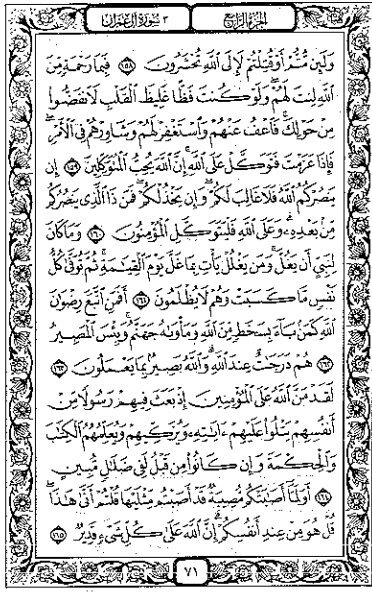 الجزء الرابع
٣ سورة آل عمران
وَلَئِن مُّتُّمْ أَوْ قُتِلْتُمْ لَإِلَى ٱللَّهِ تُحْشَرُونَ ١٥٨ فَبِمَا رَحْمَةٍ مِّنَ
ٱللَّهِ لِنتَ لَهُمْ ۖ وَلَوْ كُنتَ فَظًّا غَلِيظَ ٱلْقَلْبِ لَٱنفَضُّوا۟
مِنْ حَوْلِكَ ۖ فَٱعْفُ عَنْهُمْ وَٱسْتَغْفِرْ لَهُمْ وَشَاوِرْهُمْ فِى ٱلْأَمْرِ ۖ
فَإِذَا عَزَمْتَ فَتَوَكَّلْ عَلَى ٱللَّهِ ۚ إِنَّ ٱللَّهَ يُحِبُّ ٱلْمُتَوَكِّلِينَ ١٥٩ إِن
يَنصُرْكُمُ ٱللَّهُ فَلَا غَالِبَ لَكُمْ ۖ وَإِن يَخْذُلْكُمْ فَمَن ذَا ٱلَّذِى يَنصُرُكُم
مِّنۢ بَعْدِهِۦ ۗ وَعَلَى ٱللَّهِ فَلْيَتَوَكَّلِ ٱلْمُؤْمِنُونَ ١٦٠ وَمَا كَانَ
لِنَبِىٍّ أَن يَغُلَّ ۚ وَمَن يَغْلُلْ يَأْتِ بِمَا غَلَّ يَوْمَ ٱلْقِيَٰمَةِ ۚ ثُمَّ تُوَفَّىٰ كُلُّ
نَفْسٍ مَّا كَسَبَتْ وَهُمْ لَا يُظْلَمُونَ ١٦١ أَفَمَنِ ٱتَّبَعَ رِضْوَٰنَ
ٱللَّهِ كَمَنۢ بَآءَ بِسَخَطٍ مِّنَ ٱللَّهِ وَمَأْوَىٰهُ جَهَنَّمُ ۚ وَبِئْسَ ٱلْمَصِيرُ
١٦٢ هُمْ دَرَجَٰتٌ عِندَ ٱللَّهِ ۗ وَٱللَّهُ بَصِيرٌۢ بِمَا يَعْمَلُونَ ١٦٣
لَقَدْ مَنَّ ٱللَّهُ عَلَى ٱلْمُؤْمِنِينَ إِذْ بَعَثَ فِيهِمْ رَسُولًا مِّنْ
أَنفُسِهِمْ يَتْلُوا۟ عَلَيْهِمْ ءَايَٰتِهِۦ وَيُزَكِّيهِمْ وَيُعَلِّمُهُمُ ٱلْكِتَٰبَ
وَٱلْحِكْمَةَ وَإِن كَانُوا۟ مِن قَبْلُ لَفِى ضَلَٰلٍ مُّبِينٍ
١٦٤ أَوَلَمَّآ أَصَٰبَتْكُم مُّصِيبَةٌ قَدْ أَصَبْتُم مِّثْلَيْهَا قُلْتُمْ أَنَّىٰ هَٰذَا ۖ
قُلْ هُوَ مِنْ عِندِ أَنفُسِكُمْ ۗ إِنَّ ٱللَّهَ عَلَىٰ كُلِّ شَىْءٍ قَدِيرٌ ١٦٥
٧١